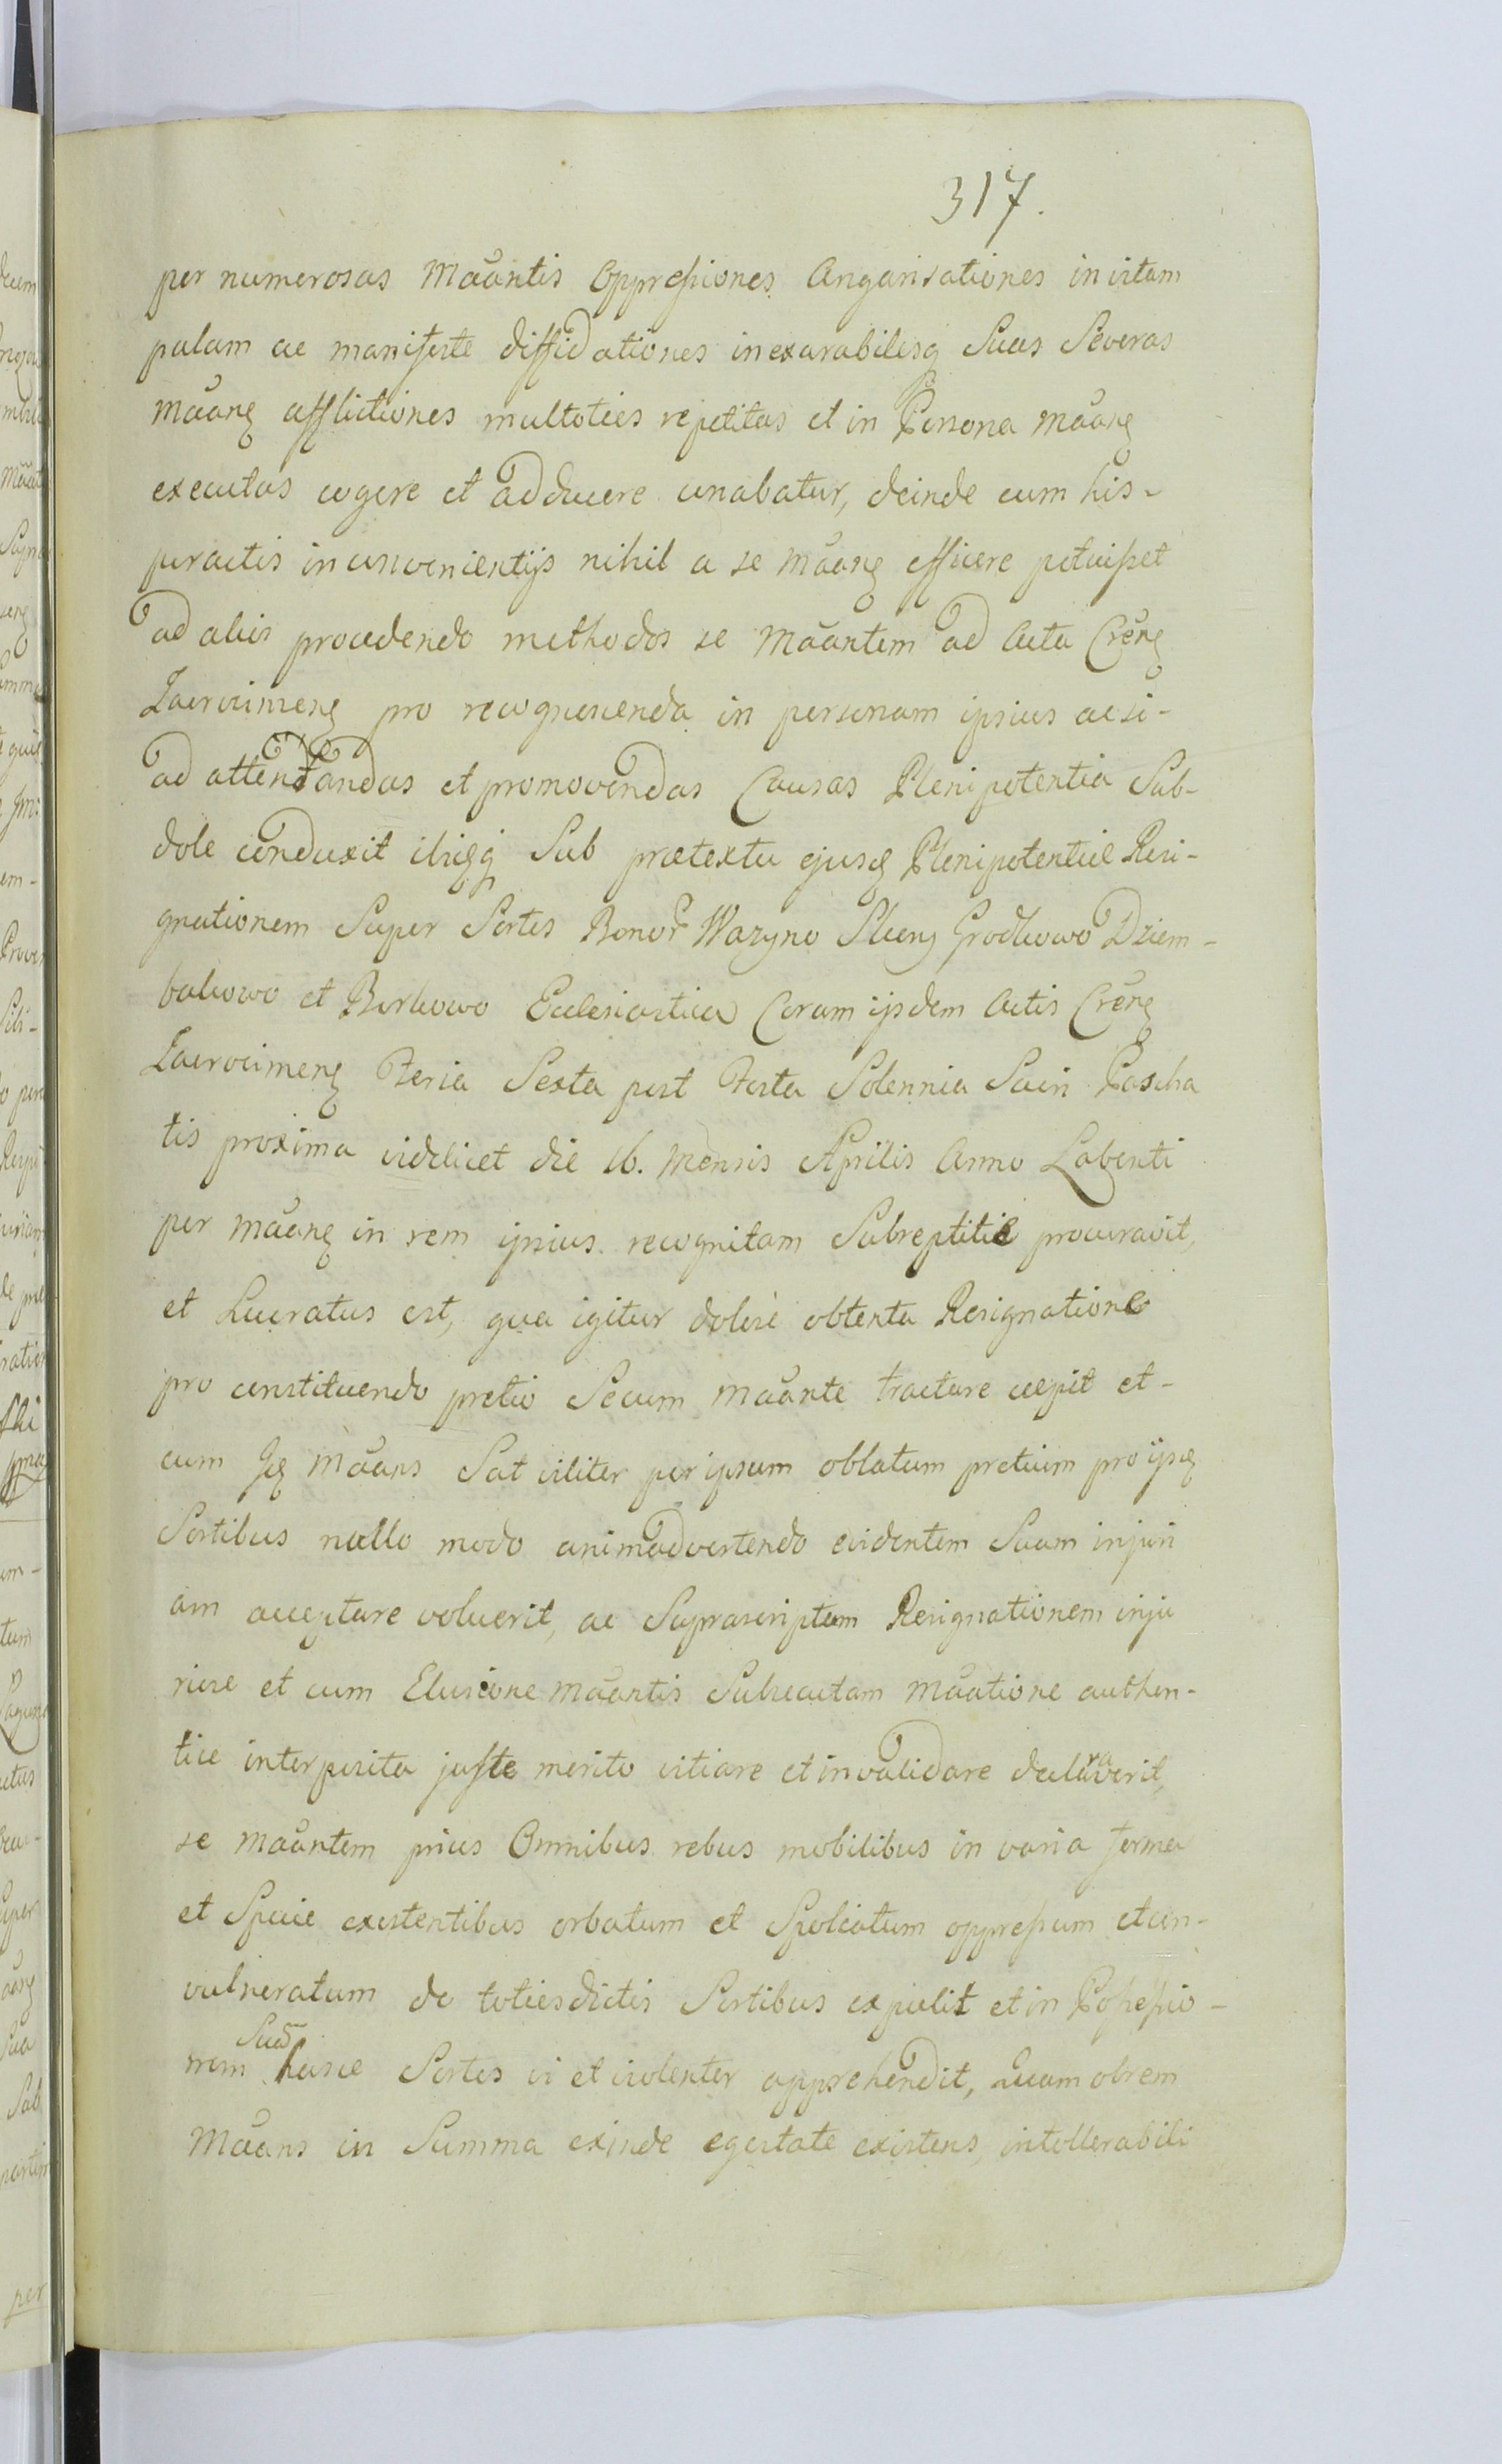 317.
per numerosas Mãantis Oppressiones Angarisationes invitam
palam ac manifeste diffidationes inexorabilesq Suas Severas
mãanę afflictiones multoties repetitas et in Persona mãanę
executas cogere et adducere conabatur, deinde cum his-
peractis inconvenientijs nihil a se mãanę efficere potuisset
ad alias procedendo methodos se mãantem ad Acta Crẽnę
Zacrocimenę pro recognoscenda in personam ipsius acsi-
ad attentandas et promovendas Causas Plenipotentia Sub-
dole conduxit ibięq Sub praetextu ejusę Plenipotentiae Resi-
gnationem Super Sortes Bonor Wazyno Grodkowo Dziem-
bakowo et Borkowo Ecclesiastica Coram ijsdem Actis Crẽnę
Zacrocimenę Feria Sexta post Festa Solennia Sacri Pascha
tis proxima videlicet die 16. Mensis Aprilis Anno Labenti
per mãanę in rem ipsius recognitam Subreptitie procuravit,
et Lucratus est, qua igitur dolose obtenta Resignatione
pro constituendo pretio Secum mãante tractare coepit et-
cum Ię mãans Sat viliter per ipsum oblatum pretium pro ijsę
Sortibus nullo modo animadvertendo evidentem Suam injuri
am acceptare voluerit, ac Suprascriptam Resignationem inju
riose et cum Elusione mãantis Subsecutam mãatione authen-
tice interposita juste merito vitiare et invalidare declaraverit,
se mãantem prius Omnibus rebus mobilibus in varia forma
et Specie existentibus orbatum et Spoliatum oppressum et con-
vulneratum de totiesdictis Sortibus expulit et in Possessio-
nem Suã hasce Sortes vi et violenter apprehendit, Quam obrem
Mãans in Summa exinde egestate existens, intollerabili